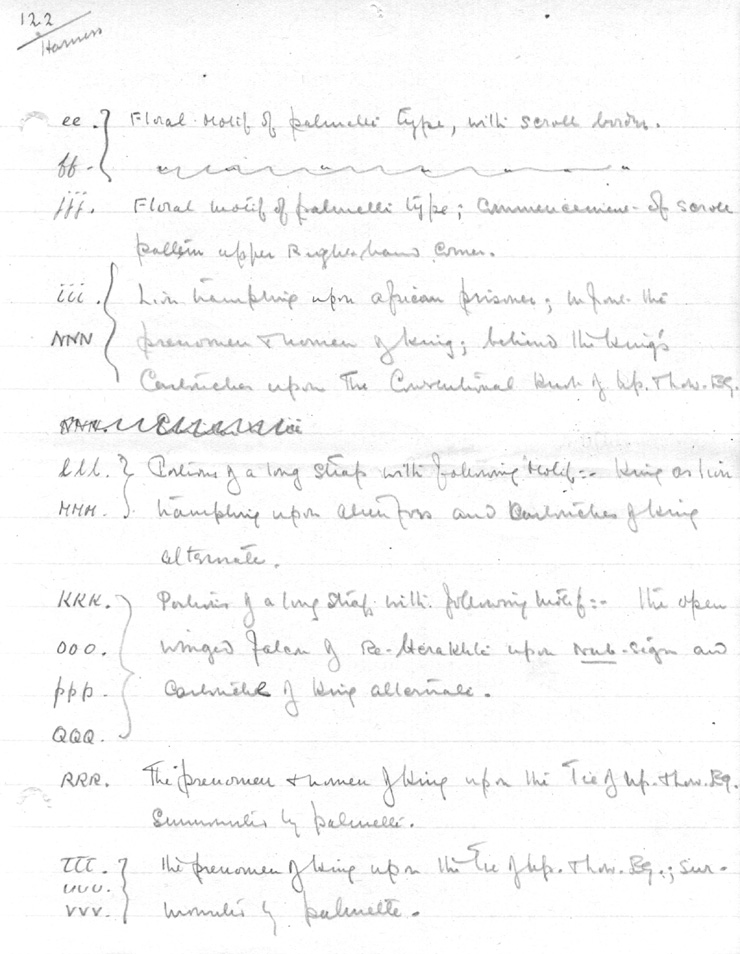 122
Harness
ee. } Floral motif of palmette type, with scroll border.
ff. " " " " "
jjj. Floral motif of palmette type; Commencement of scroll
pattern upper Right-hand Corner.
iii. Lion trampling upon african prisoner; in front the
NNN prenomen & nomen of king; behind the king's
Cartouches upon The Conventional Knot of Up. & Low. Eg.
lll. } Portions of a long strap with following motif:- King as lion
MMM. trampling upon alien foes and Cartouches of king
alternate.
KKK. Portions of a long strap with following motif:- The open
OOO. winged falcon of Re-Herakhte upon Nub-sign and
PPP. Cartouche of king alternate.
QQQ.
RRR. The prenomen & nomen of king upon the Tie of Up. & Low. Eg.
Surmounted by palmette.
TTT. The prenomen of king upon the Tie of Up. & Low. Eg.; Sur-
UUU.
VVV. mounted by palmette.